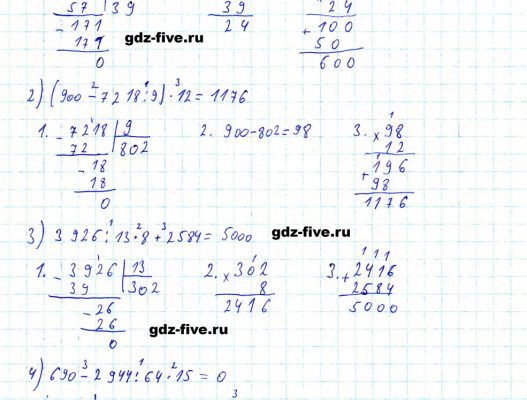 57 39 39 24
- 171 24 + 100
171 gdz-five.ru 50
0 600
2) (900 - 7218 : 9) · 12 = 1176
2 1 3
1. - 7218 | 9 2. 900 - 802 = 98 3. × 98
72 802 12
- 18 + 196
18 98
0 1176
3) 3926 : 13 · 8 + 2584 = 5000 gdz-five.ru
1 2 3
1. - 3926 | 13 2. × 302 3. + 2416
39 302 8 2584
- 26 2416 5000
26 gdz-five.ru
0
4) 690 - 2944 : 64 · 15 = 0
3 1 2
3